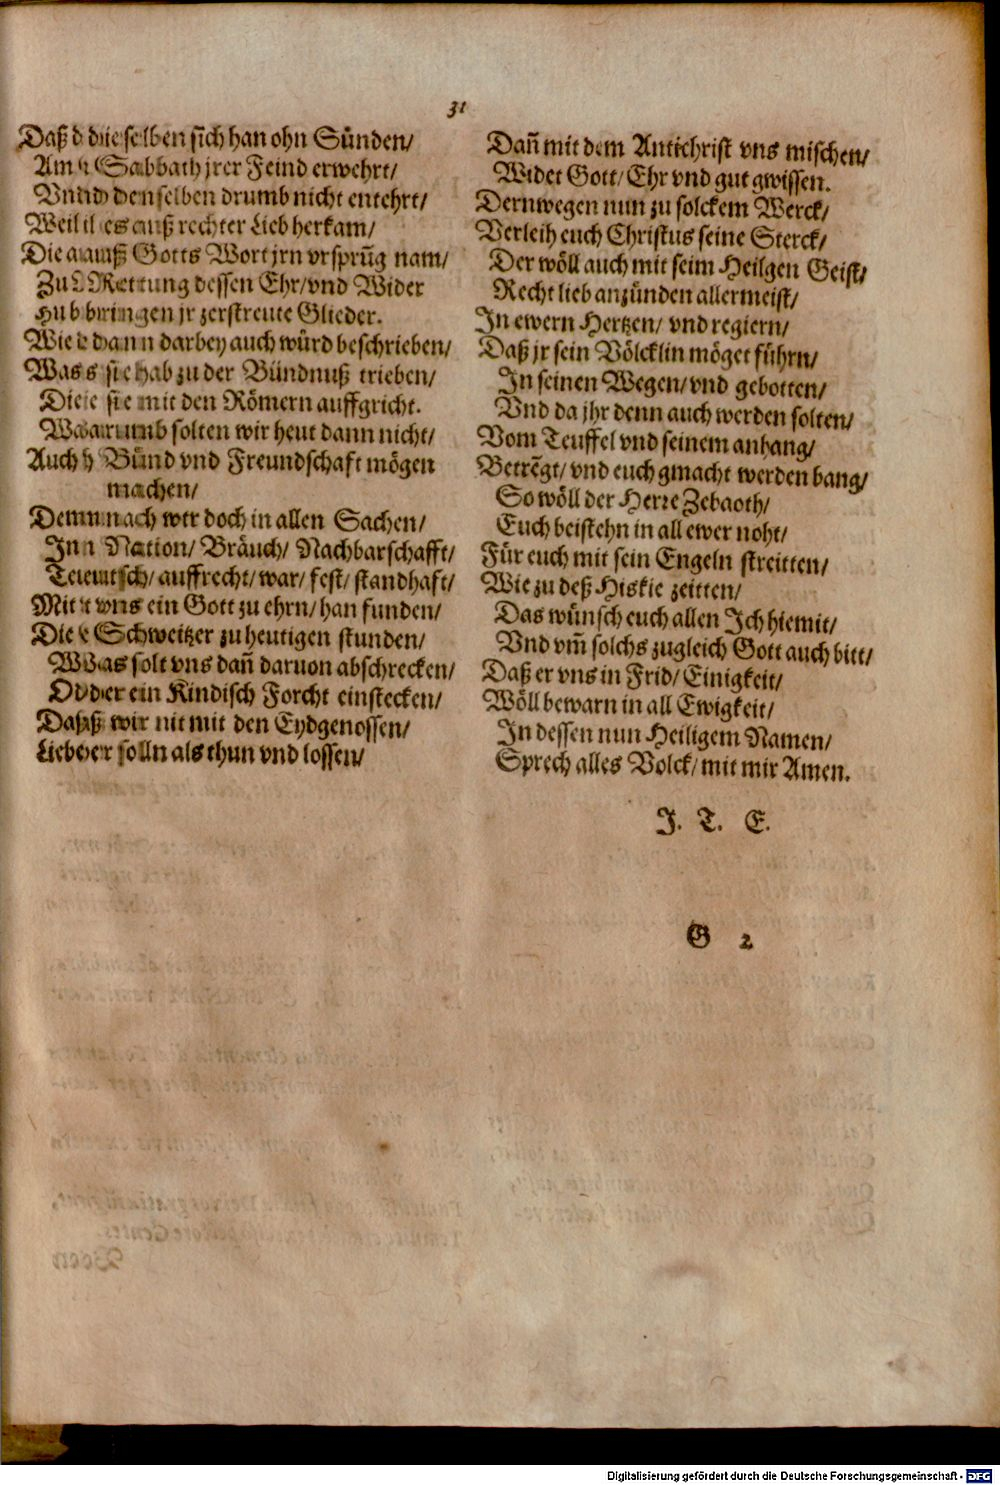 31
Daß dieselben sich han ohn Sünden/
Am Sabbath jrer Feind erwehrt/
Vnd denselben drumb nicht entehrt/
Weil es auß rechter Lieb herkam/
Die auß Gotts Wort jrn vrsprũg nam/
Zu Rettung dessen Ehr/ vnd Wider
bringen jr zerstreute Glieder.
Wie dann darbey auch würd beschrieben/
Was sie hab zu der Bündnuß trieben/
Die sie mit den Römern auffgricht.
Warumb solten wir heut dann nicht/
Auch Bünd vnd Freundschaft mögen
machen/
Demnach wir doch in allen Sachen/
In Nation/ Bräuch/ Nachbarschafft/
Teutsch/ auffrecht/ war/ fest/ standhaft/
Mit vns ein Gott zu ehrn/ han funden/
Die Schweitzer zu heutigen stunden/
Was solt vns dañ daruon abschrecken/
Oder ein Kindisch Forcht einstecken/
Daß wir nit mit den Eydgenossen/
Lieber solln als thun vnd lossen/
Dañ mit dem Antichrist vns mischen/
Wider Gott/ Ehr vnd gut gwissen.
Dernwegen nun zu solckem Werck/
Verleih euch Christus seine Sterck/
Der wöll auch mit seim Heilgen Geist/
Recht lieb anzünden allermeist/
In ewern Hertzen/ vnd regiern/
Daß jr sein Völcklin möget führn/
In seinen Wegen/ vnd gebotten/
Vnd da jhr denn auch werden solten/
Vom Teuffel vnd seinem anhang/
Betrẽgt/ vnd euch gmacht werden bang/
So wöll der Herre Zebaoth/
Euch beistehn in all ewer noht/
Für euch mit sein Engeln streitten/
Wie zu deß Hiskie zeitten/
Das wünsch euch allen Ich hiemit/
Vnd vm̃ solchs zugleich Gott auch bitt/
Daß er vns in Frid/ Einigkeit/
Wöll bewarn in all Ewigkeit/
In dessen nun Heiligem Namen/
Sprech alles Volck/ mit mir Amen.
J. T. E.
G 2
Digitalisierung gefördert durch die Deutsche Forschungsgemeinschaft - DFG